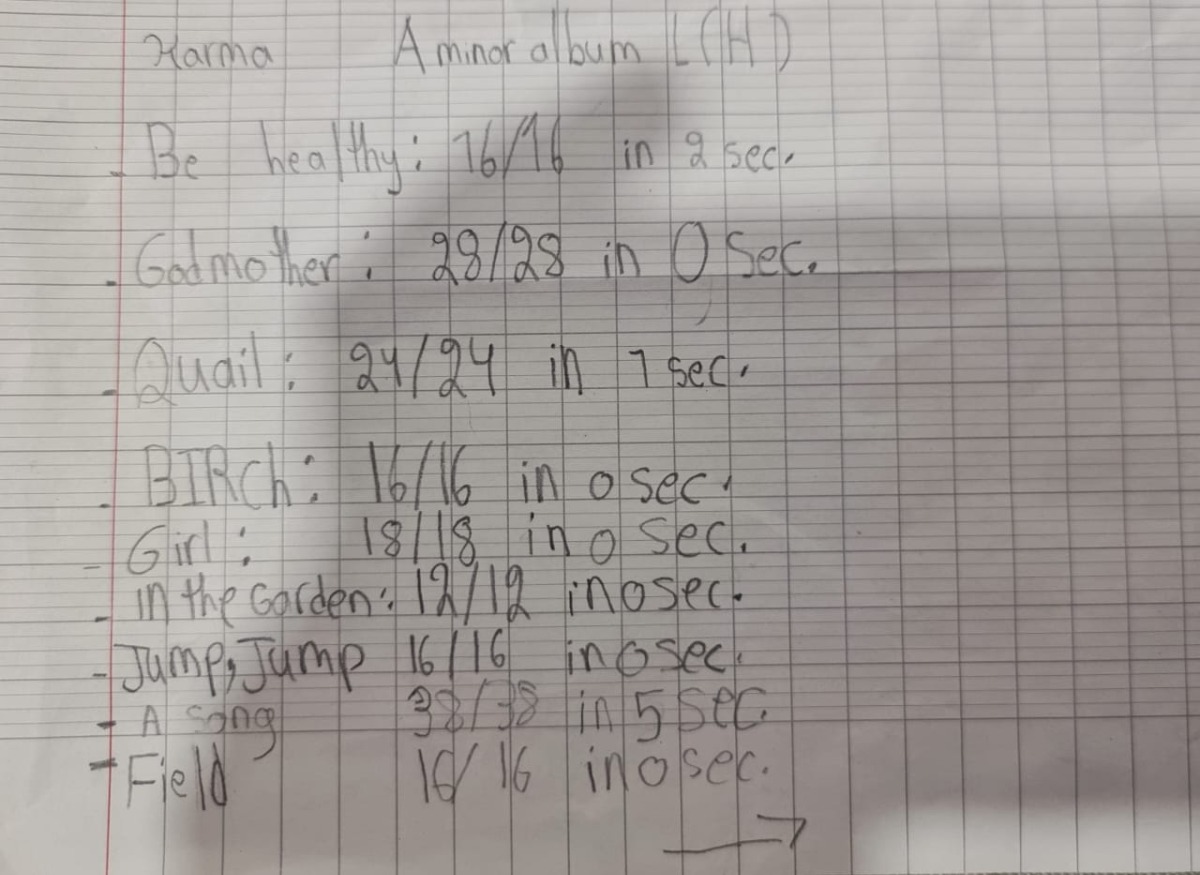 Karma A minor album L(H)
- Be healthy: 16/16 in 2 sec.
- Godmother: 28/28 in 0 sec.
- Quail: 24/24 in 1 sec.
- BIRCh: 16/16 in 0 sec.
- Girl: 18/18 in 0 sec.
- in the Garden: 12/12 in 0 sec.
- Jump, Jump 16/16 in 0 sec.
- A song 38/38 in 5 sec.
- Field 16/16 in 0 sec.
→